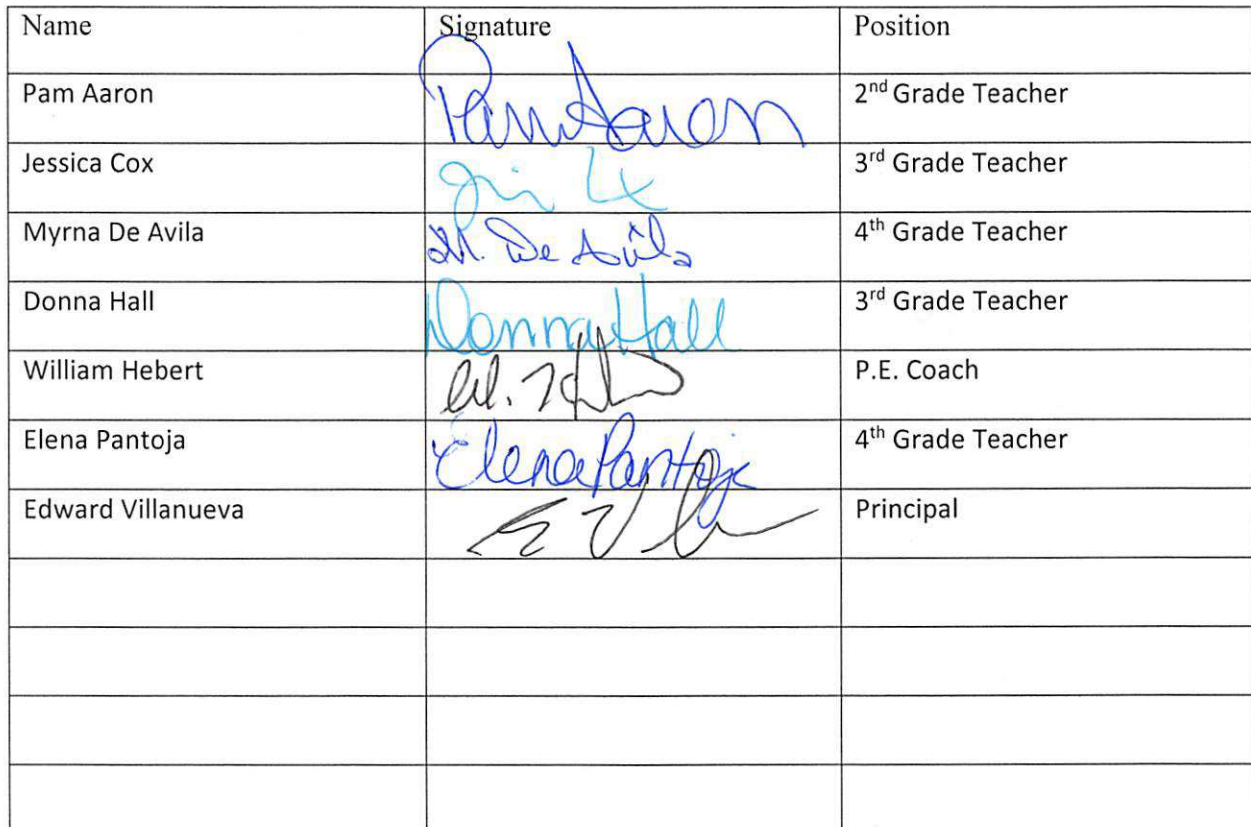 Name Signature Position
Pam Aaron Pam Aaron 2nd Grade Teacher
Jessica Cox 3rd Grade Teacher
Myrna De Avila M. De Avila 4th Grade Teacher
Donna Hall Donna Hall 3rd Grade Teacher
William Hebert W. P.E. Coach
Elena Pantoja Elena Pantoja 4th Grade Teacher
Edward Villanueva Principal